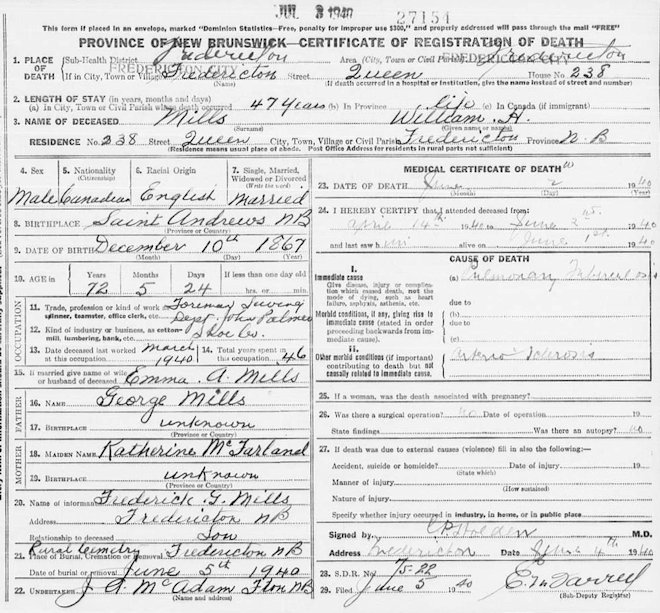 JUL 3 1940
27154
This form if placed in an envelope, marked "Dominion Statistics—Free, penalty for improper use $300," and properly addressed will pass through the mail "FREE"
PROVINCE OF NEW BRUNSWICK—CERTIFICATE OF REGISTRATION OF DEATH
1. PLACE OF DEATH Sub-Health District Fredericton Area (City, Town or Civil Parish) Fredericton
FREDERICTON CITY FREDERICTON
If in City, Town or Village Fredericton Street Queen House No. 238
(Name) (If death occurred in a hospital or institution, give the name instead of street and number)
2. LENGTH OF STAY (in years, months and days)
(a) In City, Town or Civil Parish where death occurred 47 years (b) In Province life (c) In Canada (if immigrant)
3. NAME OF DECEASED Mills William H.
(Surname) (Given name or names)
RESIDENCE No. 238 Street Queen City, Town, Village or Civil Parish Fredericton Province N B
(Residence means usual place of abode. Post Office Address for residents in rural parts not sufficient)
4. Sex Male
5. Nationality (Citizenship) Canadian
6. Racial Origin English
7. Single, Married, Widowed or Divorced (Write the word) Married
8. BIRTHPLACE Saint Andrews NB
(Province or Country)
9. DATE OF BIRTH December 10th 1867
(Month) (Day) (Year)
10. AGE in Years Months Days If less than one day old
72 5 24 hrs. or min.
OCCUPATION
11. Trade, profession or kind of work as spinner, teamster, office clerk, etc. Foreman Sewing Dept. John Palmer
12. Kind of industry or business, as cotton-mill, lumbering, bank, etc. Shoe Co.
13. Date deceased last worked at this occupation March 1940
14. Total years spent in this occupation 46
15. If married give name of wife or husband of deceased Emma A. Mills
FATHER
16. NAME George Mills
17. BIRTHPLACE unknown
(Province or Country)
MOTHER
18. MAIDEN NAME Katherine McFarland
19. BIRTHPLACE unknown
(Province or Country)
20. Name of informant Frederick G. Mills
Address Fredericton NB
Relationship to deceased Son
21. Place of Burial, Cremation or Removal Rural Cemetry Fredericton NB
Date of burial or removal June 5th 1940
22. UNDERTAKER J A McAdam Fton NB
(Name and address)
MEDICAL CERTIFICATE OF DEATH
23. DATE OF DEATH June 2 1940
(Month) (Day) (Year)
24. I HEREBY CERTIFY that I attended deceased from:
April 14th 1940 to June 2nd 1940
and last saw him alive on June 1st 1940
CAUSE OF DEATH
I.
Immediate cause (a) Pulmonary Tuberculosis
Give disease, injury or complication which caused death, not the mode of dying, such as heart failure, asphyxia, asthenia, etc.
due to
Morbid conditions, if any, giving rise to immediate cause (stated in order proceeding backwards from immediate cause). (b)
due to
(c)
II.
Other morbid conditions (if important) contributing to death but not causally related to immediate cause. Arterio Sclerosis
25. If a woman, was the death associated with pregnancy?
26. Was there a surgical operation? no Date of operation 19
State findings Was there an autopsy? no
27. If death was due to external causes (violence) fill in also the following:—
Accident, suicide or homicide? Date of injury 19
(State which)
Manner of injury
(How sustained)
Nature of injury
Specify whether injury occurred in industry, in home, or in public place
Signed by C P Holden M.D.
Address Fredericton Date June 4th 1940
28. S.D.R. No. 75-22
29. Filed June 5 1940
(Sub-Deputy Registrar)